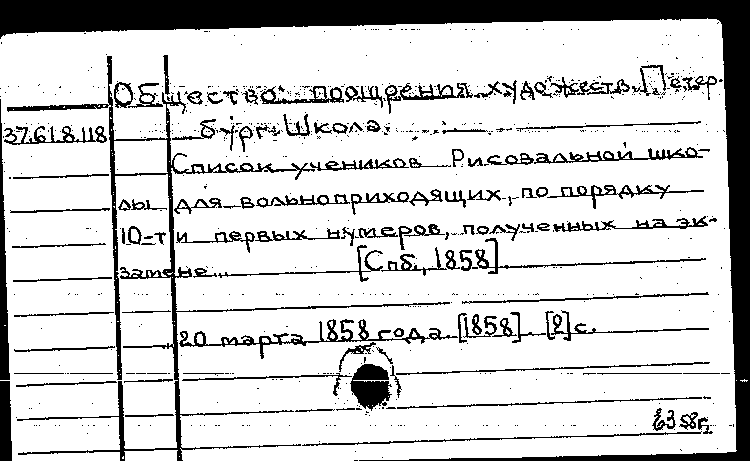 Общество поощрения художеств. Петер-
37.61.8.118 бург. Школа.
Список учеников Рисовальной шко-
лы для вольноприходящих, по порядку
10-ти первых нумеров, полученных на эк-
замене... [Спб., 1858]
20 марта 1858 года. [1858]. [2] с.